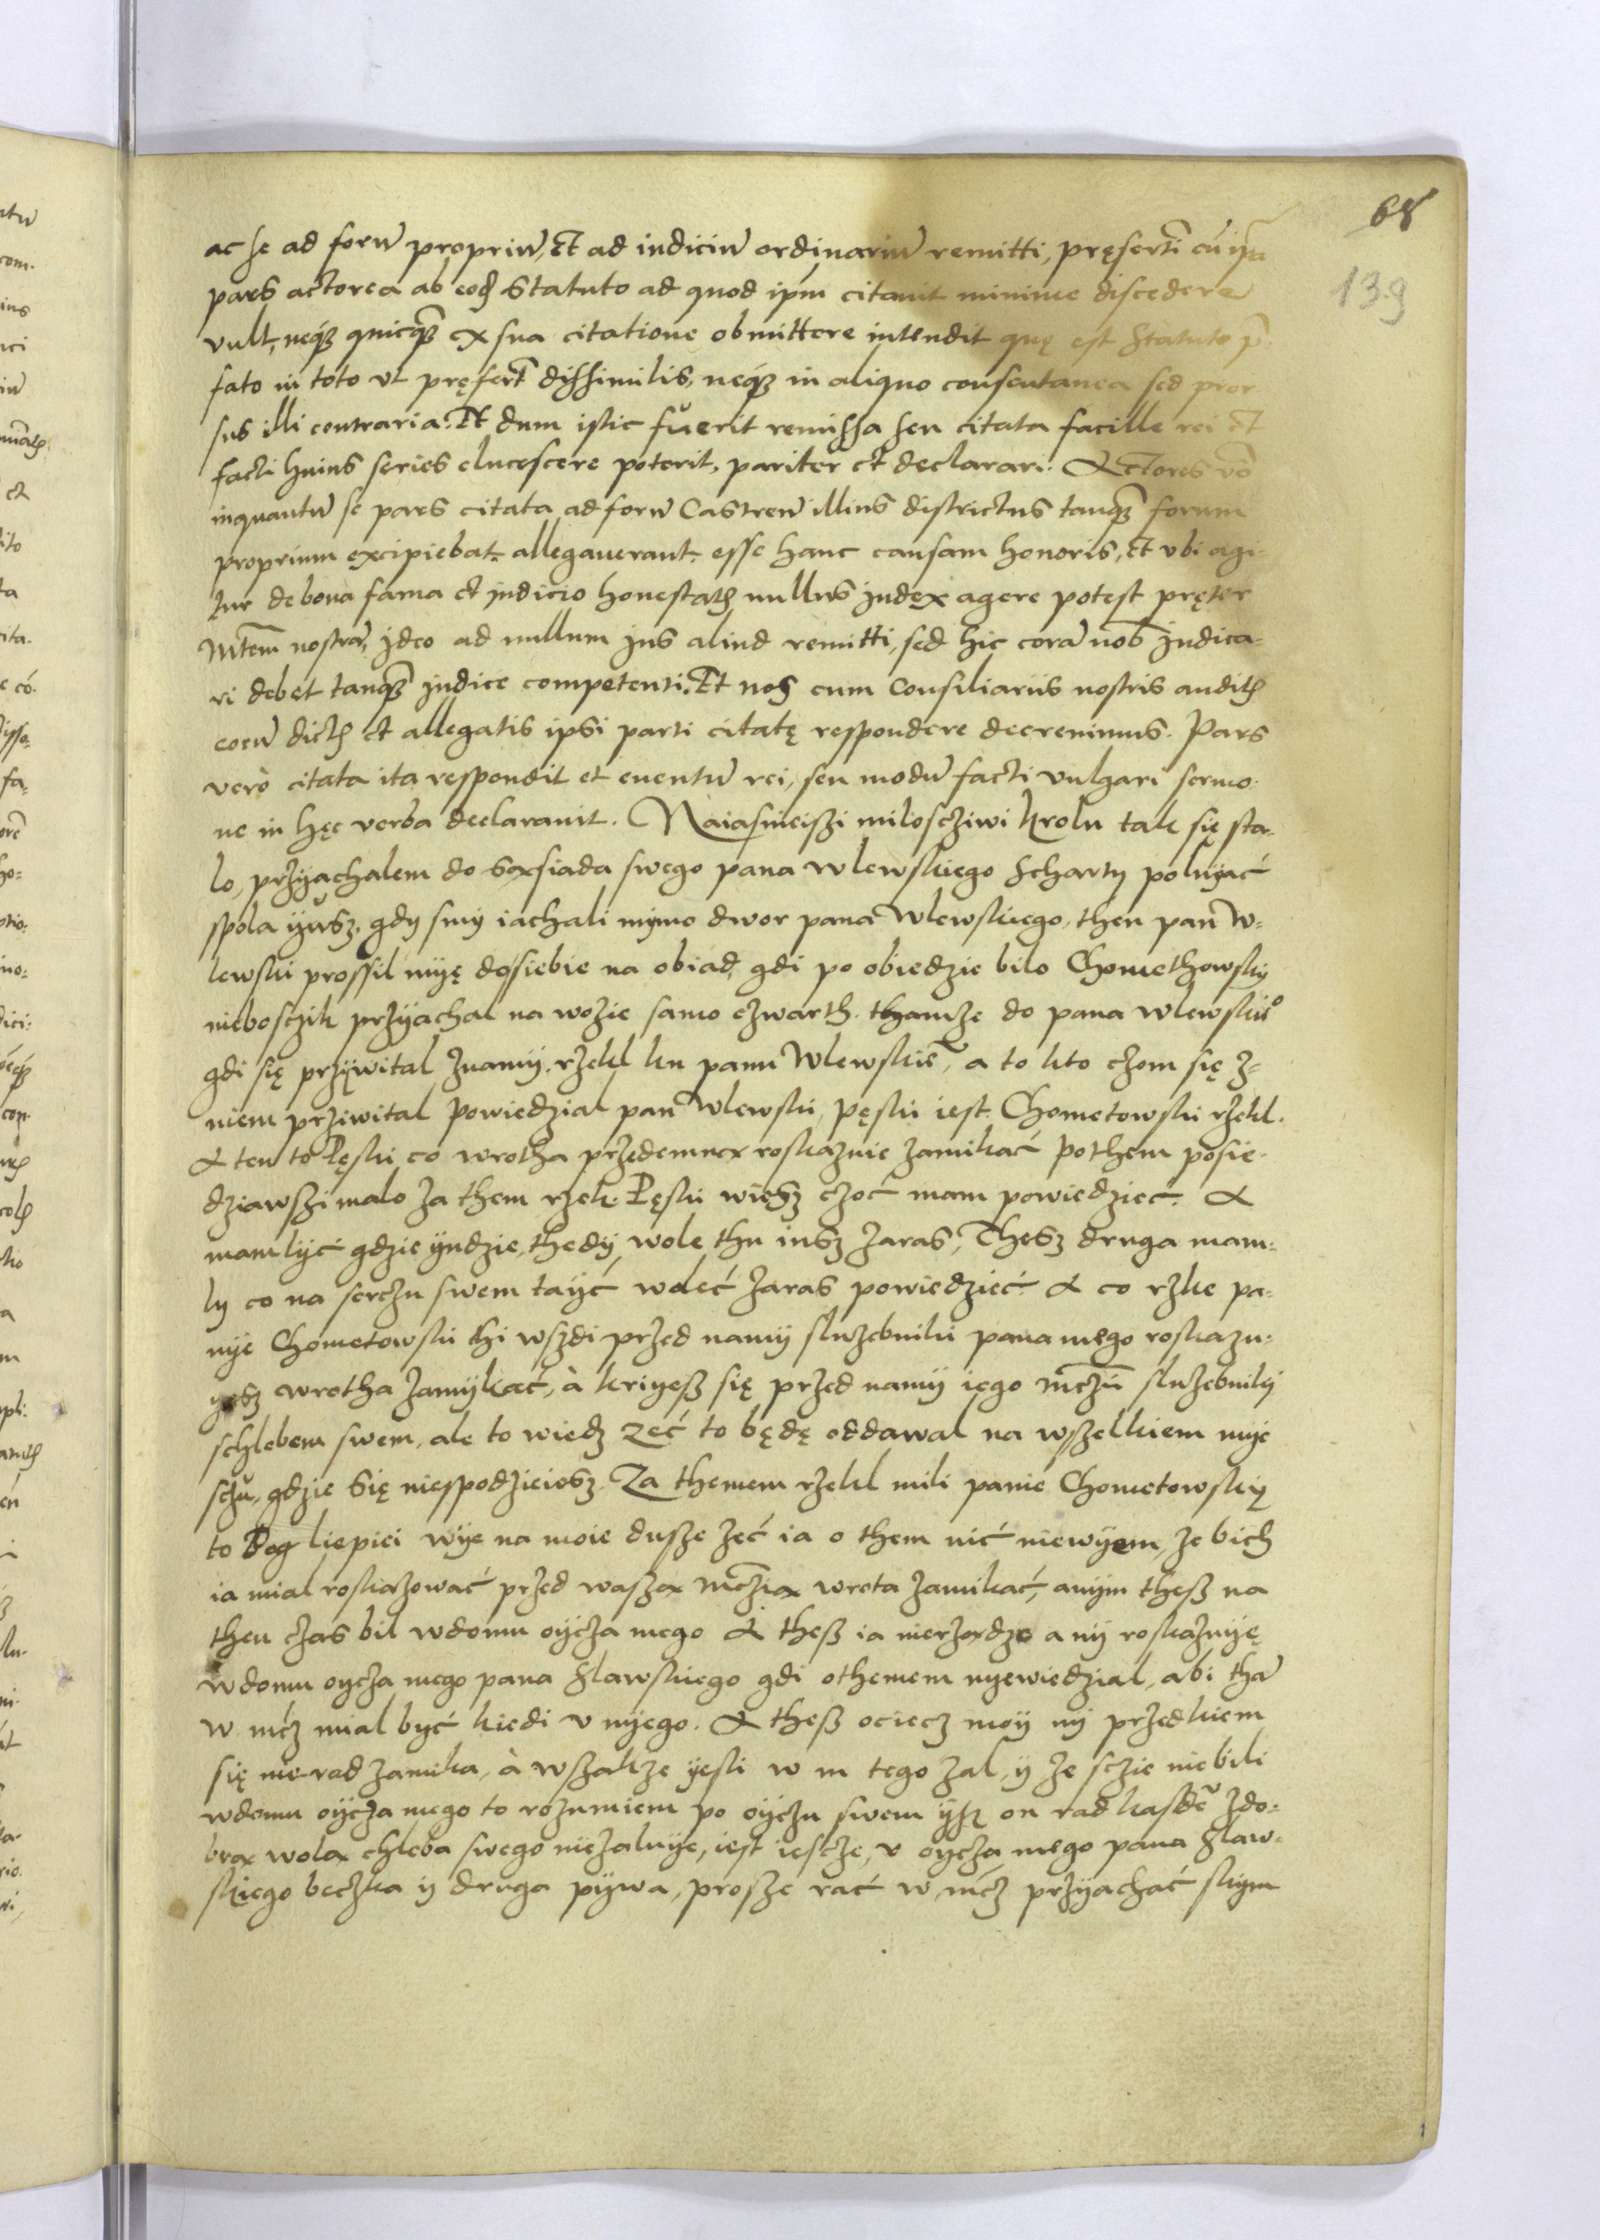 68
139
ac se ad forũ propriũ, et ad iudiciũ ordinariũ remitti, pręsertī cū ipā
pars actorea ab eod statuto ad quod ipm̄ citauit minime discedere
vult, neq̃ȝ quicq̃ȝ ex sua citatione obmittere intendit quę est statuto p̄
fato in toto vt pręfert dissimilis, neq̃ȝ in aliquo consentanea sed pror
sus illi contraria. Et dum istic fŭerit remissa seu citata facille rei et
facti huius series elucescere poterit, pariter et declarari. Actores vō
inquantũ se pars citata ad forũ Castreñ illius districtus tanq̃ȝ forum
proprium excipiebat, allegauerant, esse hanc causam honoris, et vbi agi-
tur de bona fama et iudicio honestatis nullus iudex agere potest pręter
Mtem̄ nostrā, ideo ad nullum ius aliud remitti, sed hic corā nob̄ iudica-
ri debet tanq̃ȝ iudice competenti. Et nos cum Consiliariis nostris auditis
eorũ dictis et allegatis ipsi parti citatę respondere decreuimus. Pars
verò citata ita respondit et euentũ rei, seu modũ facti vulgari sermo-
ne in hęc verba declarauit. Naiasnieiszi milosciwi krolu tak się sta-
lo, przyachalem do sąsiada swego pana Wlewskiego Scharty poluyać
spola yusz, gdy smy iachali mymo dwor pana Wlewskiego, then pan W-
lewski prossil myę do siebie na obiad, gdi po obiedzie bilo Chomethowsky
nieboszczik przyachal na wozie samo czwarth, thamze do pana Wlewskio
gdi się przywital znamy, rzekl ku panu Wlewskiē, a to kto czom się z-
niem przivital powiedzial pan Wlewski, Pęski iest. Chometowski rzekl.
A ten to Pęski co wrotha przedemną roskaznie zamikać pothem posie-
dziawszi malo za them rzek Pęski wiesz czoć mam powiedzieć. A
mam lyć gdzie yndzie, thedy wole thu iusz zaras, Thesz druga mam-
ly co na serczu swem tayć woleć zaras powiedzieć A co rzke pa-
nye Chometowski thi wszdi przed namy sluzebniki pana mego roskazu-
yesz wrotha zamykać, à kriyesz się przed namy iego mczū sluzebniky
schlebem swem, ale to wiedz zeć to będę oddawal na wszelkiem mye
sczu, gdzie się niespodzieiesz. Za themem rzekl mili panie Chometowsky
to Bog liepiei wye na moie dusze zeć ia o them nić niewyem, ze bich
ia mial roskazować przed waszą mczią wrota zamikać, anym thesz na
then czas bil wdomu oycza mego A thesz ia nierządzę a ny roskazuyę
wdomu oycza mego pana Slawskiego gdi othemem nyewiedzial, abi thā
w mcz mial być kiedi v nyego. A thesz ociecz moy ny przedkiem
się nie rad zamika, à wszakze yesli w m tego zal, y ze sczie niebili
wdomu oycza mego to rozumiem po oyczu swem ysz on rad kasdē zdo-
brą wolą chleba swego nie zaluye, iest iescze, v oycza mego pana Slaw-
skiego beczka y druga pywa, prosze rać w mcz przyachać skym